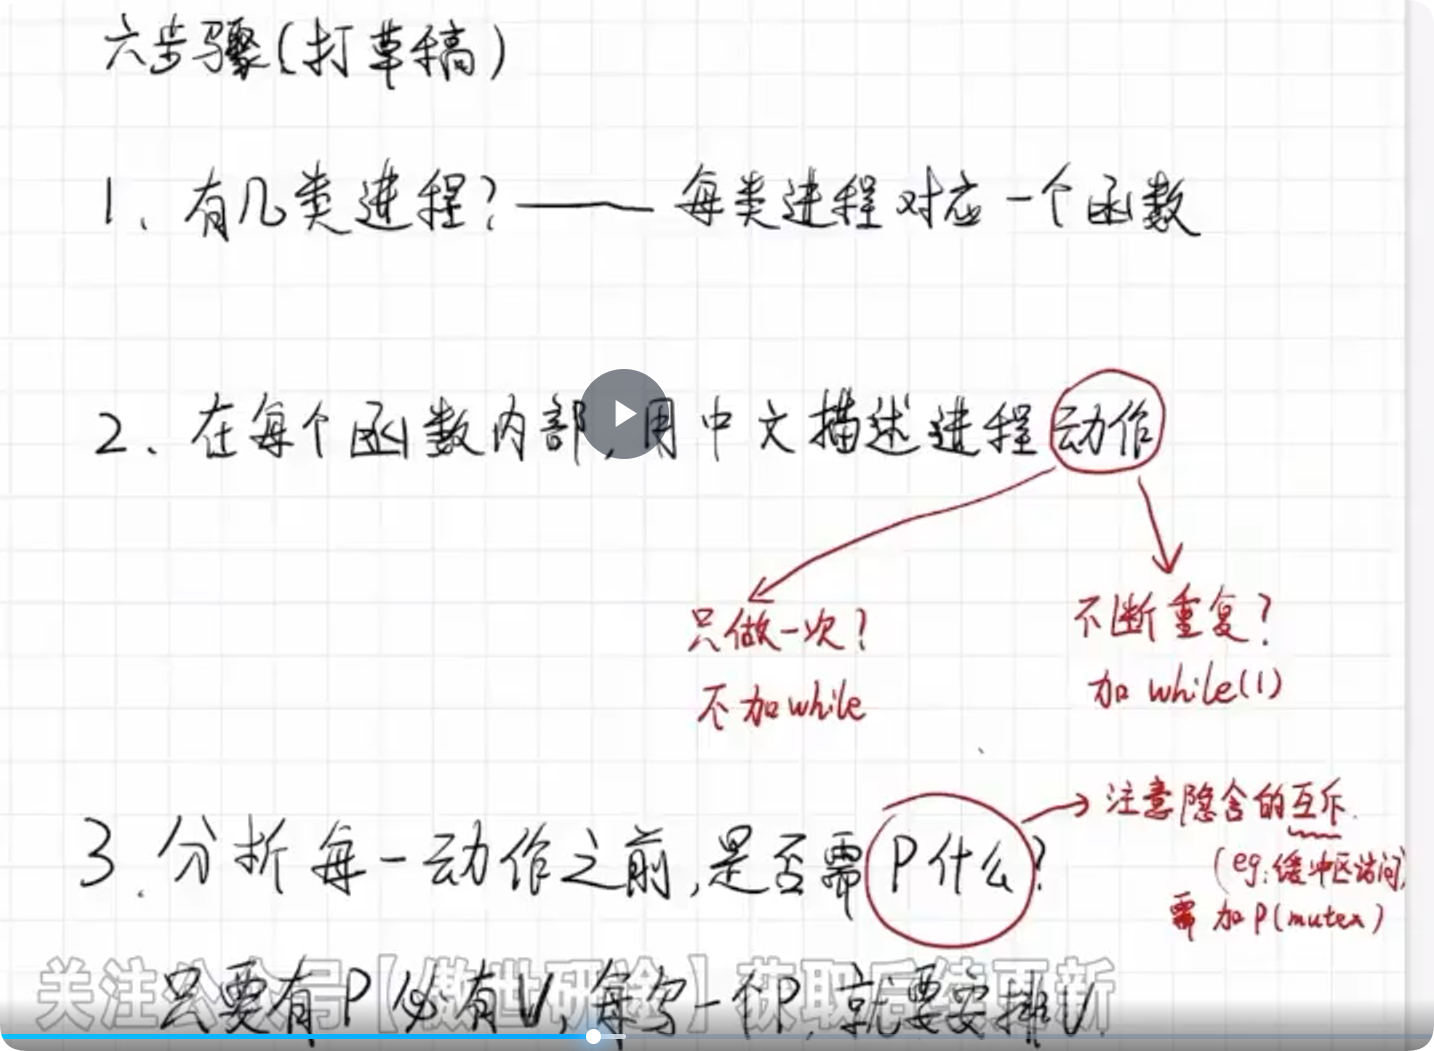 六步骤(打草稿)
1、有几类进程?——每类进程对应一个函数
2、在每个函数内部,用中文描述进程动作
只做一次?
不加while
不断重复?
加while(1)
3.分析每一动作之前,是否需P什么?
注意隐含的互斥.
(eg:缓冲区访问)
需加P(mutex)
只要有P必有V,每写一个P,就要安排V
关注公众号【傲世研途】获取后续更新